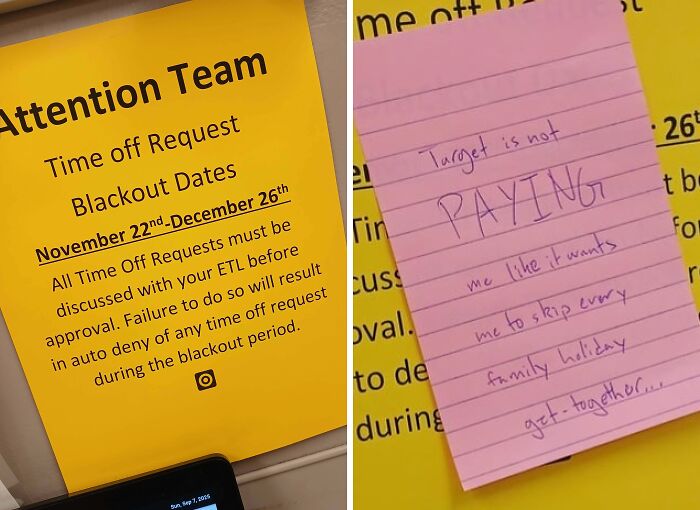 Attention Team
Time off Request
Blackout Dates
November 22nd-December 26th
All Time Off Requests must be
discussed with your ETL before
approval. Failure to do so will result
in auto deny of any time off request
during the blackout period.
Sun, Sep 7, 2025
me off Request
26th
Target is not
PAYING
me like it wants
me to skip every
family holiday
get-together...
t be
Tim
for
cuss
oval.
to de
during